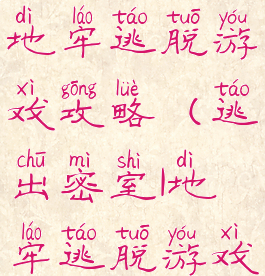 dì láo táo tuō yóu
地牢逃脱游
xì gōng lüè táo
戏攻略（逃
chū mì shì dì
出密室|地
láo táo tuō yóu xì
牢逃脱游戏